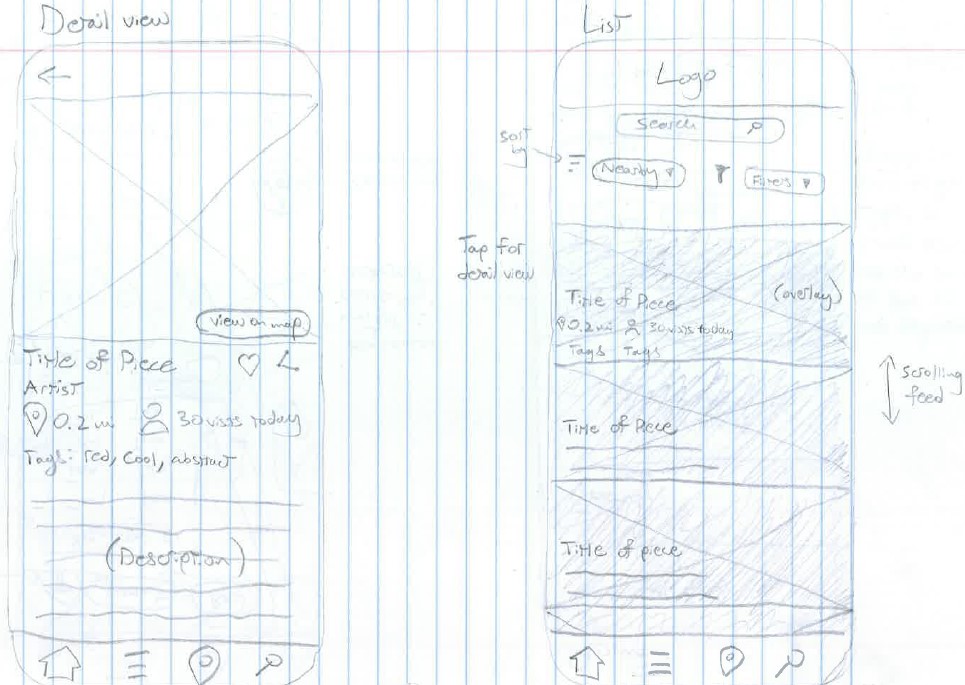 Detail view
View on map
Title of Piece
Artist
0.2 mi 30 visits today
Tags: red, cool, abstract
(Description)
List
Logo
Search
Sort by
Nearby
Filters
Tap for
detail view
Title of Piece
(overlay)
0.2 mi 30 visits today
Tags Tags
Title of Piece
Scrolling
feed
Title of piece